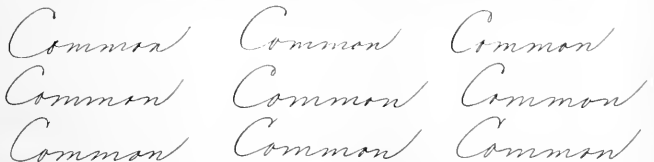 Common Common Common
Common Common Common
Common Common Common